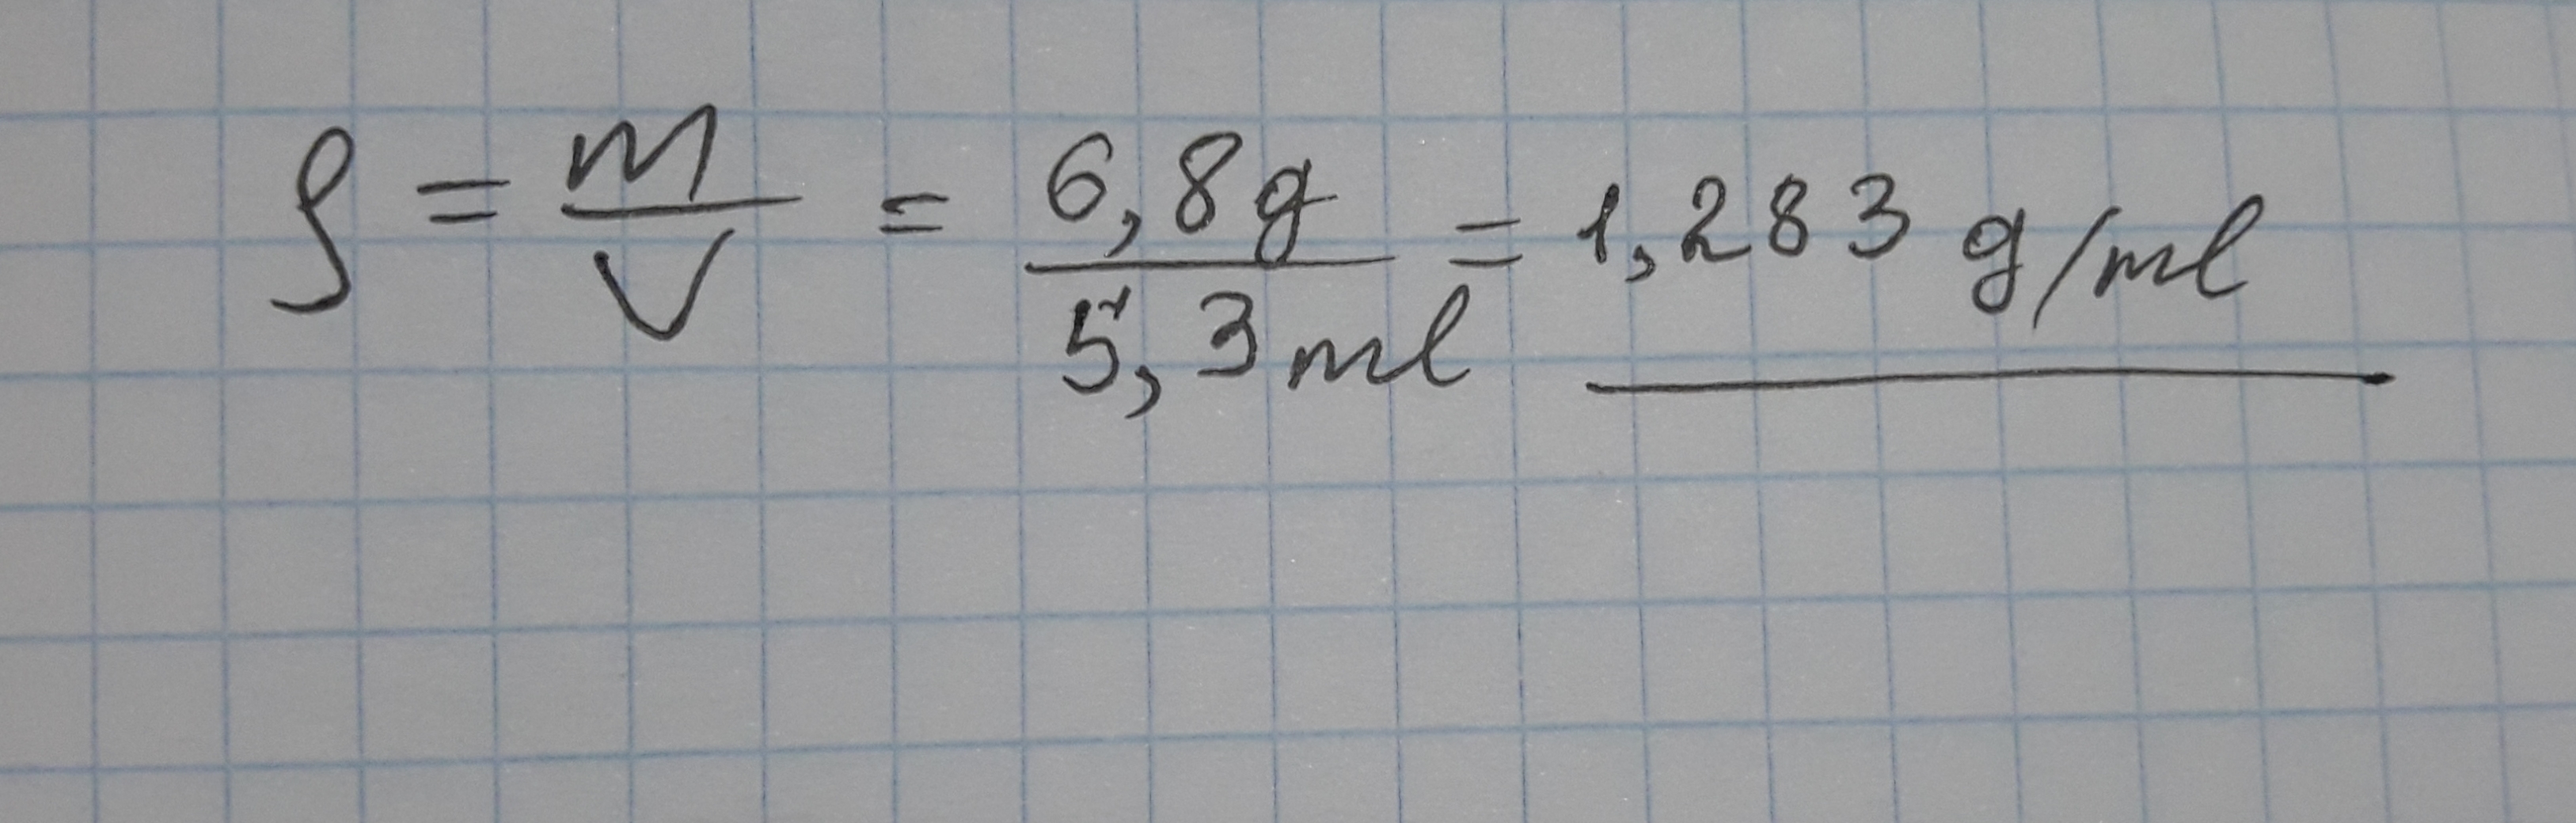 ρ = m/V = 6,8g/5,3ml = 1,283 g/ml